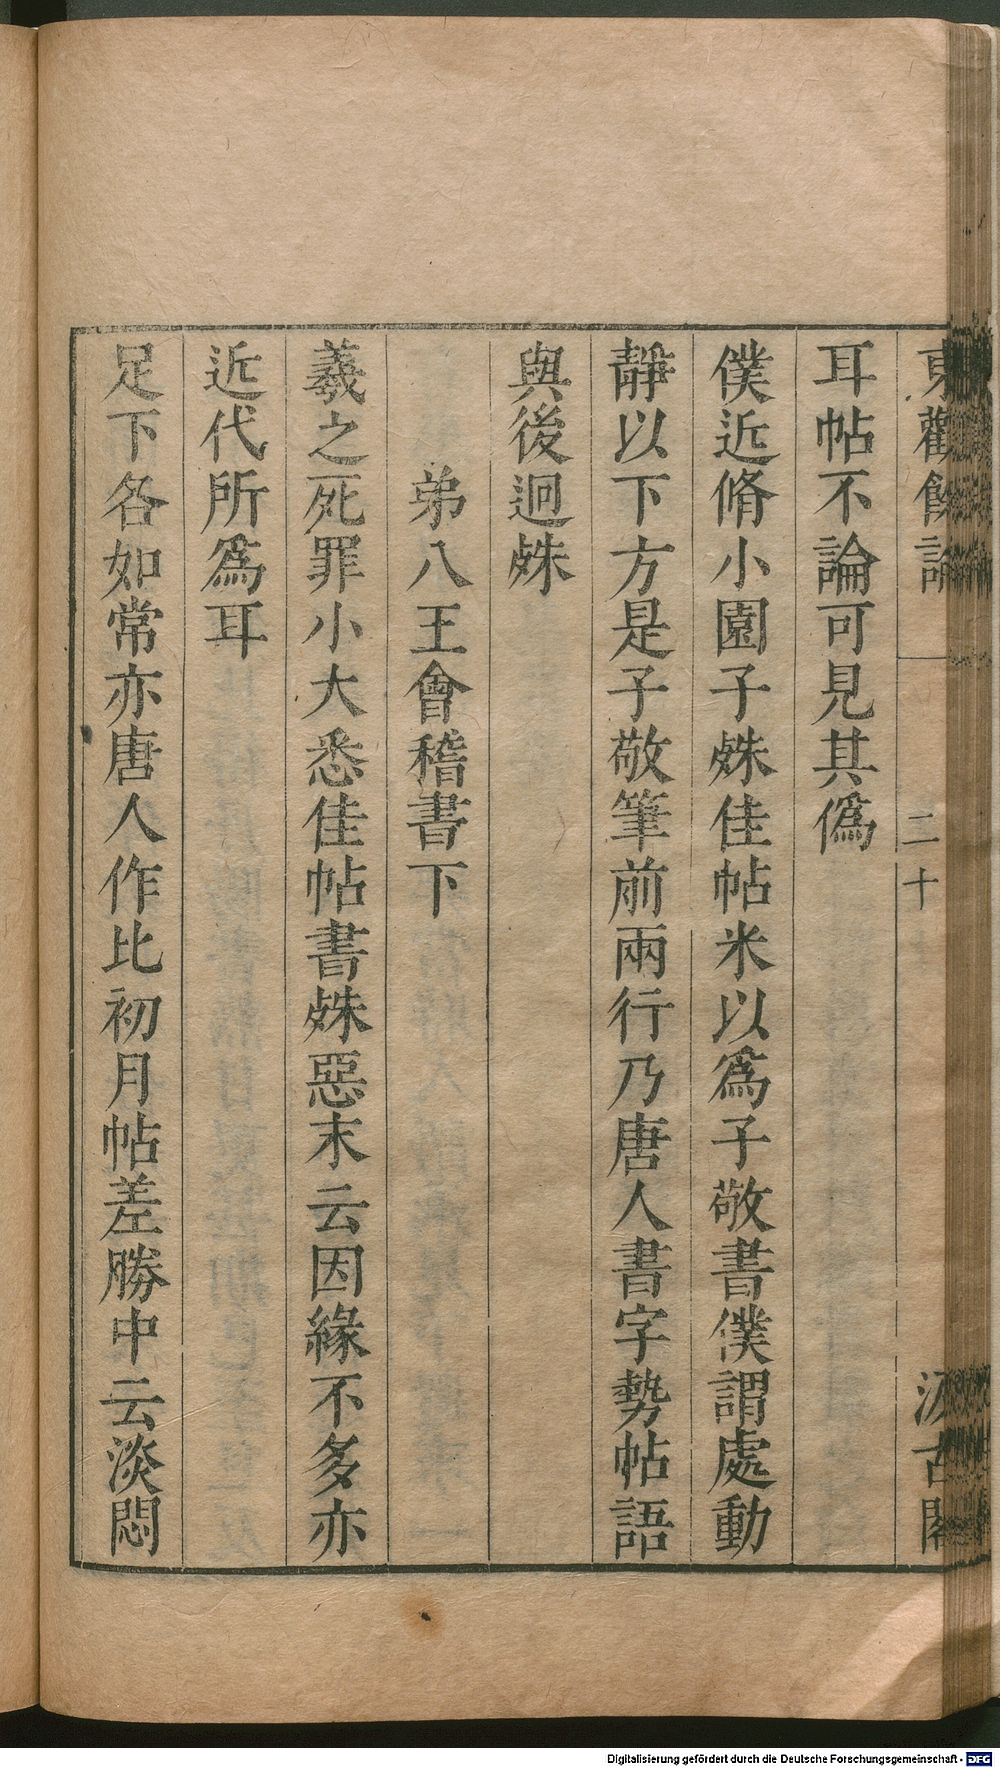 東觀餘論
二十
汲古閣
耳帖不論可見其僞
僕近脩小園子殊佳帖米以爲子敬書僕謂處動
靜以下方是子敬筆前兩行乃唐人書字勢帖語
與後迥殊
弟八王會稽書下
羲之死罪小大悉佳帖書殊惡末云因緣不多亦
近代所爲耳
足下各如常亦唐人作比初月帖差勝中云淡悶
Digitalisierung gefördert durch die Deutsche Forschungsgemeinschaft - DFG